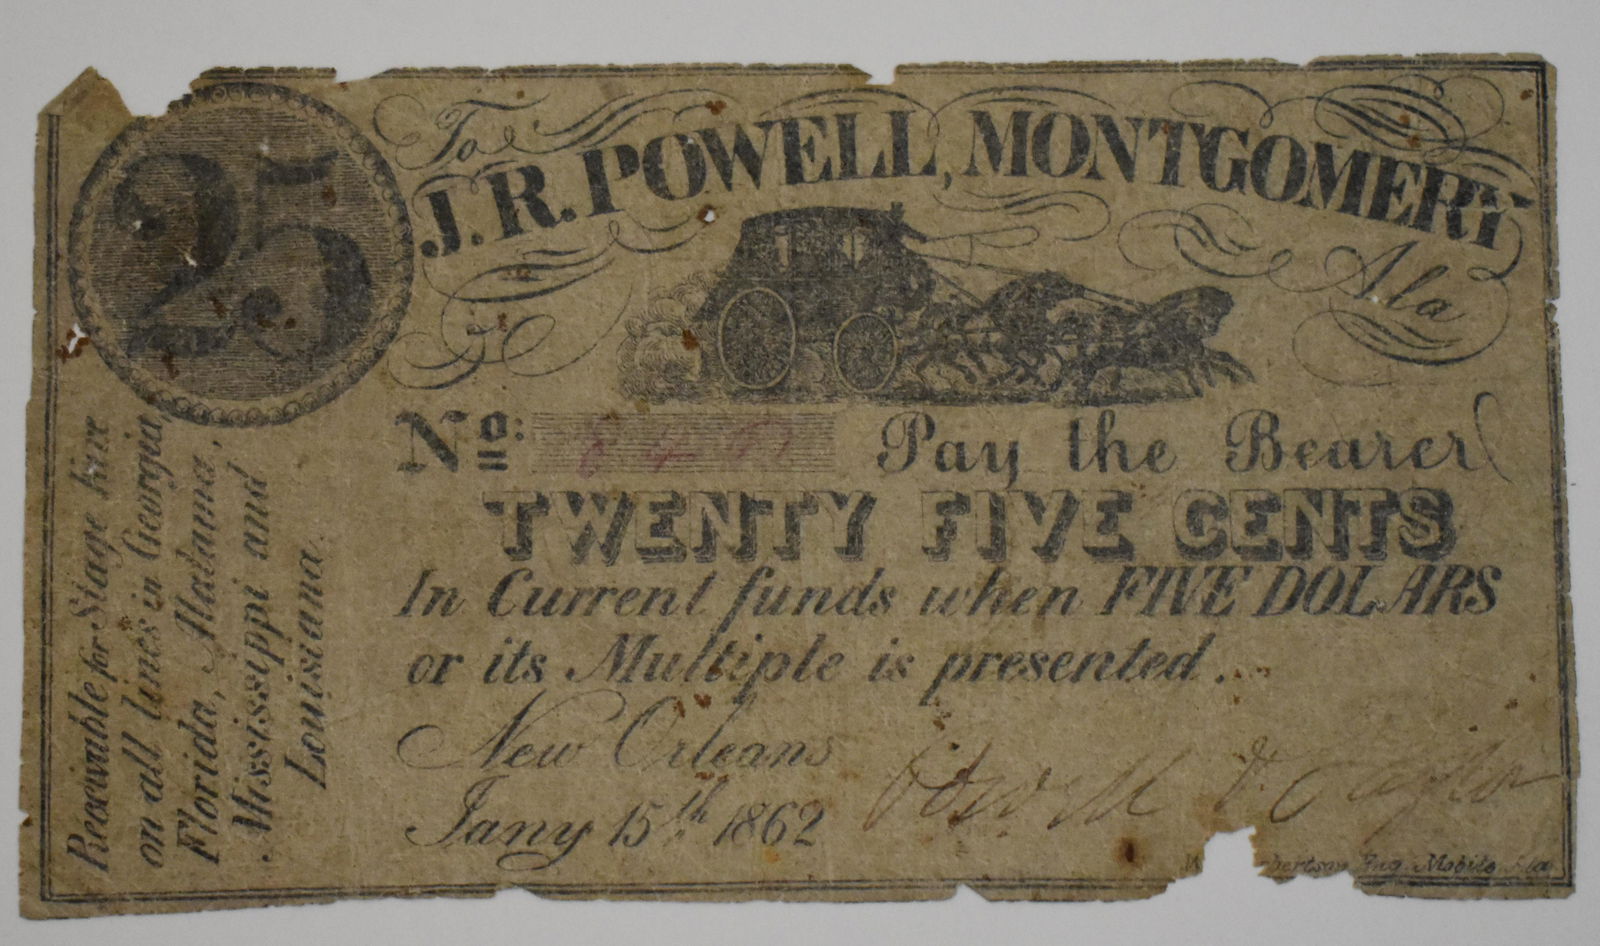 25
To
J.R. POWELL, MONTGOMERY
Ala
No:
Pay the Bearer
TWENTY FIVE CENTS
In Current funds when FIVE DOLLARS
or its Multiple is presented.
New Orleans
Jany 15th 1862
Powell & Taylor
Eng. Mobile Ala
Receivable for Stage Fare
on all lines in Georgia,
Florida, Alabama,
Mississippi and
Louisiana.